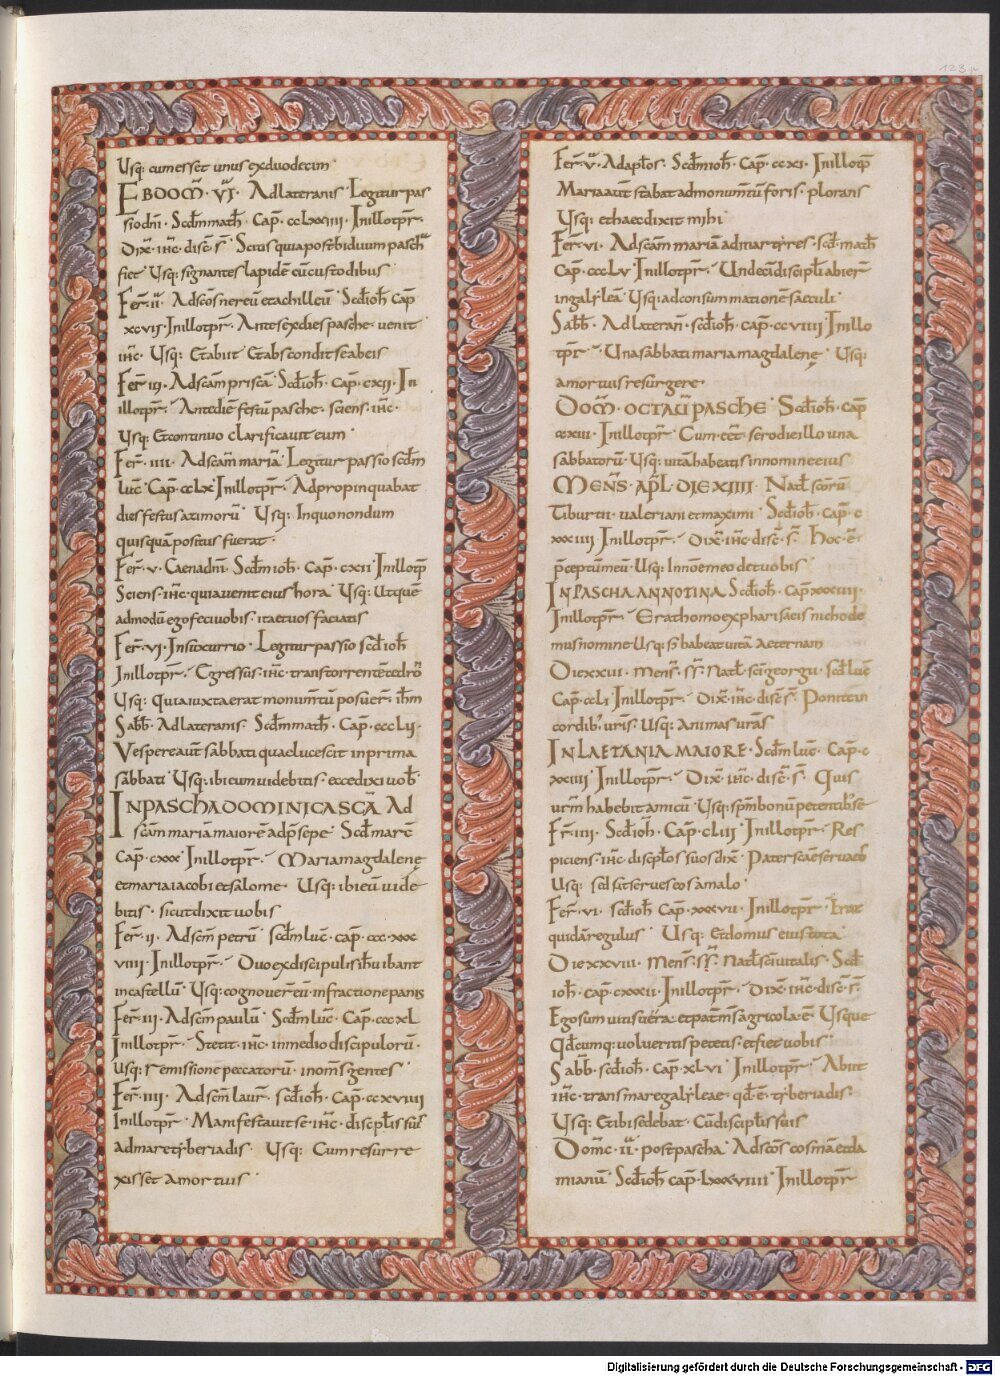 123r
Usq; cum esset unus ex duodecim·
EBDOM̄· VI· Ad lateranis· Legitur pas
sio dn̄i· Scd̄m math̄· Cap̄· ccLxxiiii· In illo tpr̄·
Dix̄· ih̄c· disc̄· s̄· Scitis quia post biduum pasch
fiet· Usq; signantes lapidē cū custodibus·
Fer̄· ii· Ad sc̄os nereū et achilleū· Scd̄ ioh̄ cap̄
xcvii· In illo tpr̄· Ante sex dies pasche· uenit
ih̄c· Usq; Et abiit et abscondit se ab eis
Fer̄· iii· Ad sc̄am priscā· Scd̄ ioh̄· Cap̄· cxii· In
illo tpr̄· Ante diē festū pasche· sciens· ih̄c·
Usq; Et continuo clarificauit eum·
Fer̄· iiii· Ad sc̄am mariā· Legitur passio scd̄m
luc̄· Cap̄· ccLx· In illo tpr̄· Adpropinquabat
dies festus azimorū· Usq; In quo nondum
quisquā positus fuerat·
Fer̄· v· Caena dn̄i· Scd̄m ioh̄· Cap̄· cxii· In illo tp̄
Sciens· ih̄c· quia uenit eius hora· Usq; Ut quē
admodū ego feci uobis· ita et uos faciatis
Fer̄· vi· In suxcurrio· Legitur passio scd̄ ioh̄
In illo tpr̄· Egressus· ih̄c· trans torrentē cedrō
Usq; Quia iuxta erat monumtū posuer̄· ih̄m
Sabb̄· Ad lateranis· Scd̄m math̄· Cap̄· cccLii·
Vespere aut̄ sabbati quae lucescit in prima
sabbati· Usq; ibi eum uidebitis· ecce dixi uob̄·
IN PASCHA DOMINICA SCĀ· Ad
sc̄am mariam maiorē ad p̄sepe· Scd̄ marc̄
Cap̄· cxxx· In illo tpr̄· Maria magdalenę
et maria iacobi et salome· Usq; ibi eū uidę
bitis· sicut dixit uobis
Fer̄· ii· Ad scm̄ petrū· scd̄m luc̄· cap̄· ccc·xxx
viiii· In illo tpr̄· Duo ex discipulis ih̄u ibant
in castellū· Usq; cognouer̄ eū· in fractione panis
Fer̄· iii· Ad scm̄ paulū· Scd̄m luc̄· Cap̄· cccxL
In illo tpr̄· Stetit· ih̄c· in medio discipulorū·
Usq; remissione peccatorū· in om̄s gentes·
Fer̄· iiii· Ad scm̄ laur̄· scd̄ ioh̄· Cap̄· ccxviiii
In illo tpr̄· Manifestauit se· ih̄c· discplis suis
ad mare tyberiadis· Usq; Cum resurre
xisset a mortuis·
Fer̄· v· Ad aplos· Scd̄m ioh̄· Cap̄· ccxi· In illo tp̄
Maria aut̄ stabat ad monum̄tū foris· plorans
Usq; et haec dixit mihi
Fer̄· vi· Ad sc̄am mariā ad martyres· scd̄ math̄
Cap̄· cccLv· In illo tpr̄· Undeci discipli abier̄
in galyleā· Usq; ad consummationē saeculi·
Sabb̄· Ad lateran̄· scd̄ ioh̄· cap̄· ccviiii· In illo
tpr̄· Una sabbati maria magdalenę· Usq;
a mortuis resurgere·
DOM̄· OCTAŪ PASCHE· Scd̄ ioh̄· cap̄
ccxiii· In illo tpr̄· Cum eēt sero die illo una
sabbatorū· Usq; uitā habeatis in nomine eius
MENS̄· APL̄· DIE XIIII· Natl̄ scōrū
Tiburtii· ualeriani et maximi· Scd̄ ioh̄· cap̄· c
xxxiiii· In illo tpr̄· Dix̄· ih̄c· disc̄· s̄· Hoc· ē·
p̄ceptū meū· Usq; In noe meo det uobis
IN PASCHA ANNOTINA· Scd̄ ioh̄· cap̄ xxiiii·
In illo tpr̄· Erat homo ex pharisaeis nichode
mus nomine· Usq; s; habeat uitā aeternam
Die xxvi· mens̄· ss̄· Natl̄· sc̄i georgii· scd̄ luc̄
Cap̄· ccLi· In illo tpr̄· Dix̄· ih̄c· disc̄· s̄· Ponite in
cordib; uris̄· Usq; Animas uras̄
IN LAETANIA MAIORE· Scd̄m luc̄· Cap̄· c
xxiiii· In illo tpr̄· Dix̄· ih̄c· disc̄· s̄· Quis
urm̄ habebit amicū· Usq; spm̄ bonū petentib; se
Fr̄· iiii· Scd̄ ioh̄· Cap̄· cLiii· In illo tpr̄· Res
piciens· ih̄c· discplos suos dix̄· Pater scāe serua eos
Usq; sed sit serues eos a malo·
Fer̄· vi· scd̄ ioh̄· Cap̄· xxxvii· In illo tpr̄· Erat
quidā regulus· Usq; Et domus eius tota
Die xxviii· mens̄· ss̄· Natl̄ sc̄i uitalis· Scd̄
ioh̄· cap̄· cxxxii· In illo tpr̄· Dix̄· ih̄c· disc̄· s̄·
Ego sum uitis uera· et pat̄ ms̄ agricola· ē· Usque
qd̄cumq; uolueritis petetis· et fiet uobis·
Sabb̄· scd̄ ioh̄· cap̄· xLvi· In illo tpr̄· Abiit
ih̄c· trans mare galyleae· qd̄· ē· tyberiadis·
Usq; Et ibi sedebat· Cū disciplis suis
Dom̄c· ii· post pascha· Ad scōs cosmā et da
mianū· Scd̄ ioh̄ cap̄· Lxxxviiii· In illo tpr̄
Digitalisierung gefördert durch die Deutsche Forschungsgemeinschaft - DFG